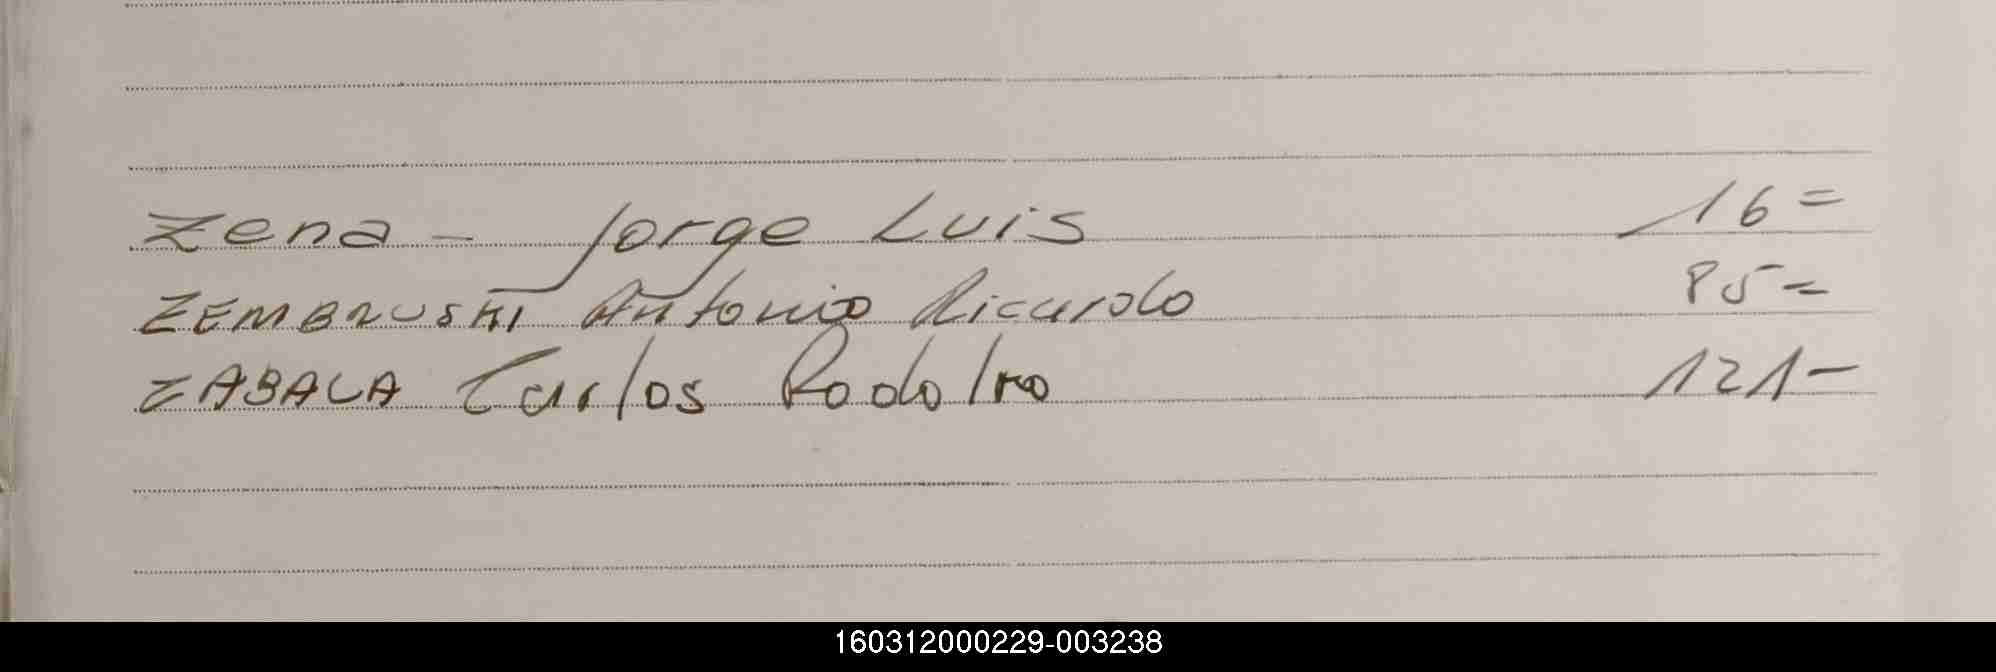 Zena - Jorge Luis 16=
ZEMBRUSKI Antonio Ricardo 85=
ZABALA Carlos Rodolfo 121-
160312000229-003238